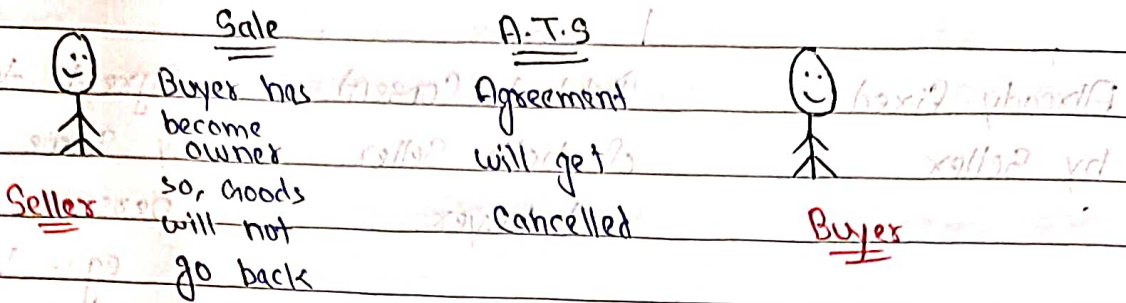 Sale
A.T.S
Buyer has
become
owner
so, Goods
will not
go back
Agreement
will get
Cancelled
Seller
Buyer